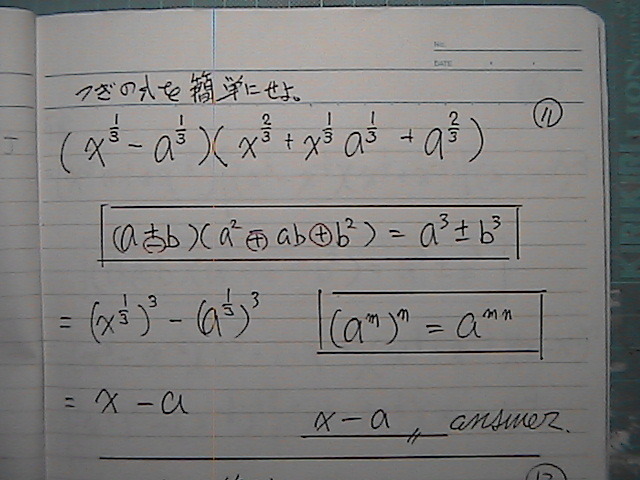 NO.
DATE
つぎの式を簡単にせよ。
⑪
(x^{1/3} - a^{1/3})(x^{2/3} + x^{1/3} a^{1/3} + a^{2/3})
(a ± b)(a² ∓ ab + b²) = a³ ± b³
= (x^{1/3})³ - (a^{1/3})³
(a^m)^n = a^{mn}
= x - a
x - a 〃 answer.